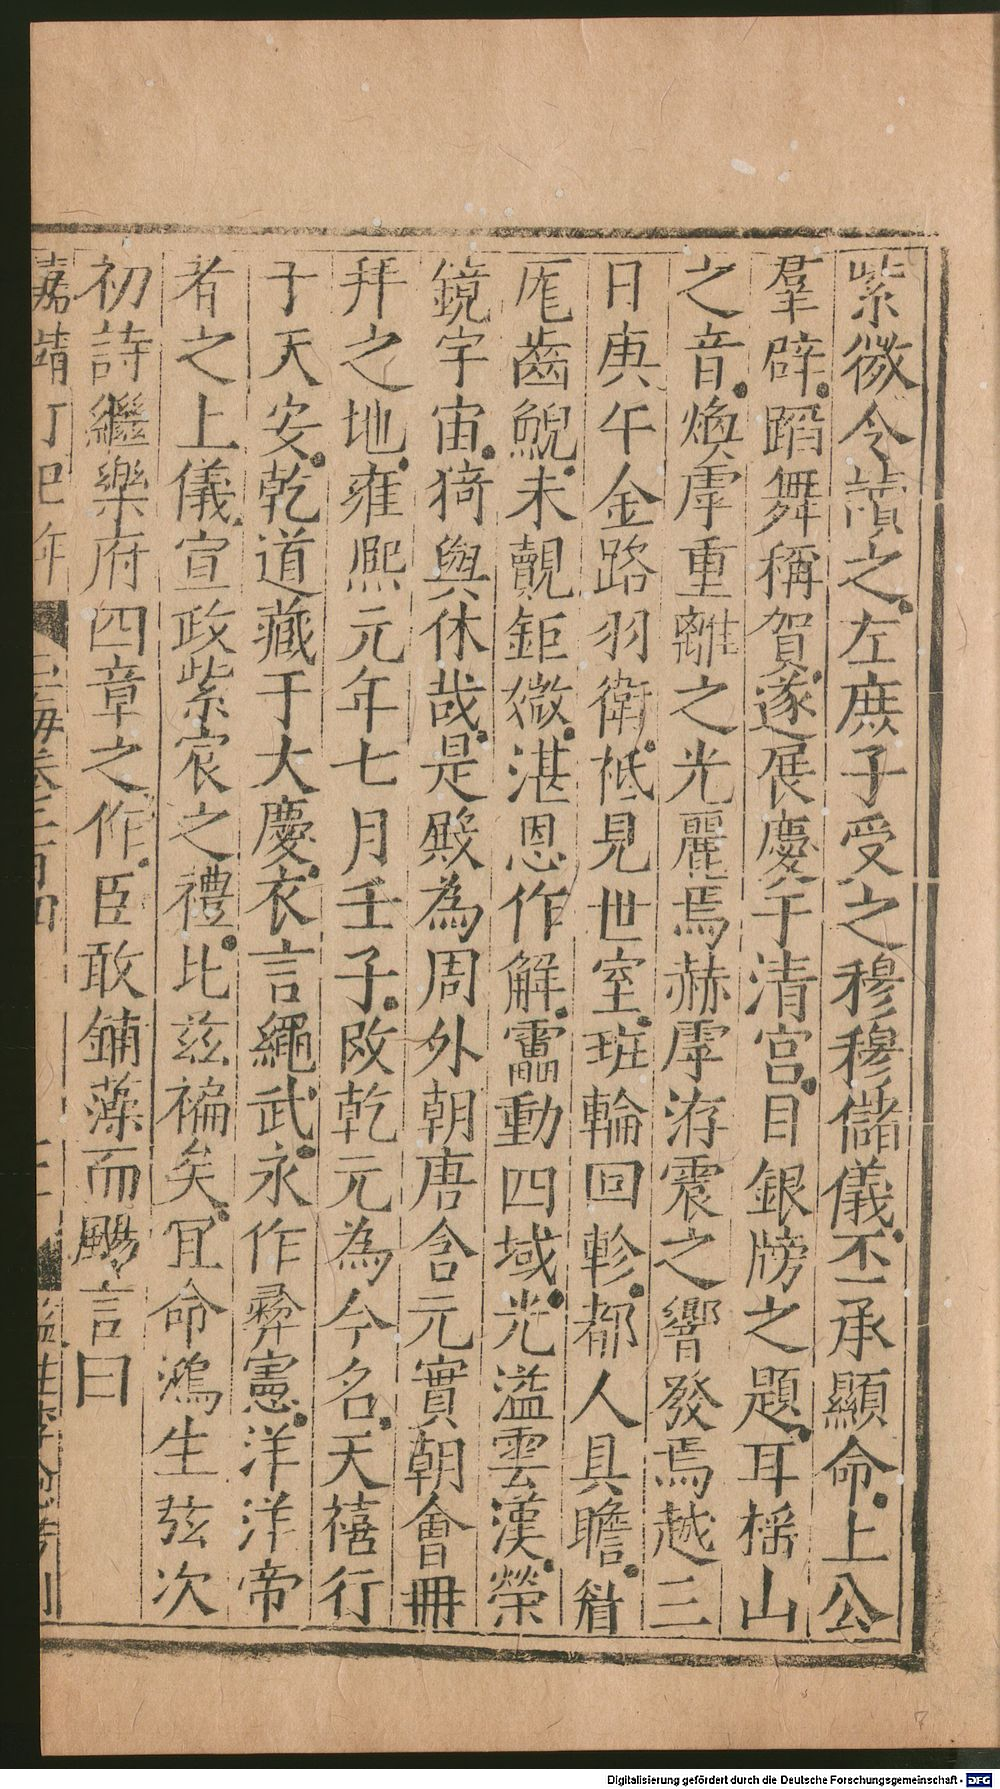 紫微令讀之左庶子受之穆穆儲儀丕承顯命上公
羣辟蹈舞稱賀遂展慶于清宮目銀牓之題耳搖山
之音煥虖重離之光麗焉赫虖洊震之響發焉越三
日庚午金路羽衛柢見世室班輪回軫都人具瞻
厖齒鯢未覿鉅媺湛恩作解靁動四域光溢雲漢榮
鏡宇宙猗與休哉是殿為周外朝唐含元實朝會冊
拜之地雍熙元年七月壬子改乾元為今名天禧行
于天安乾道藏于大慶衣言繩武永作彝憲洋洋帝
者之上儀宣政紫宸之禮比茲褊矣冝命鴻生弦次
初詩繼樂府四章之作臣敢鋪藻而颺言曰
嘉靖丁巳年
玉海卷二百四
監生李
刊
Digitalisierung gefördert durch die Deutsche Forschungsgemeinschaft - DFG